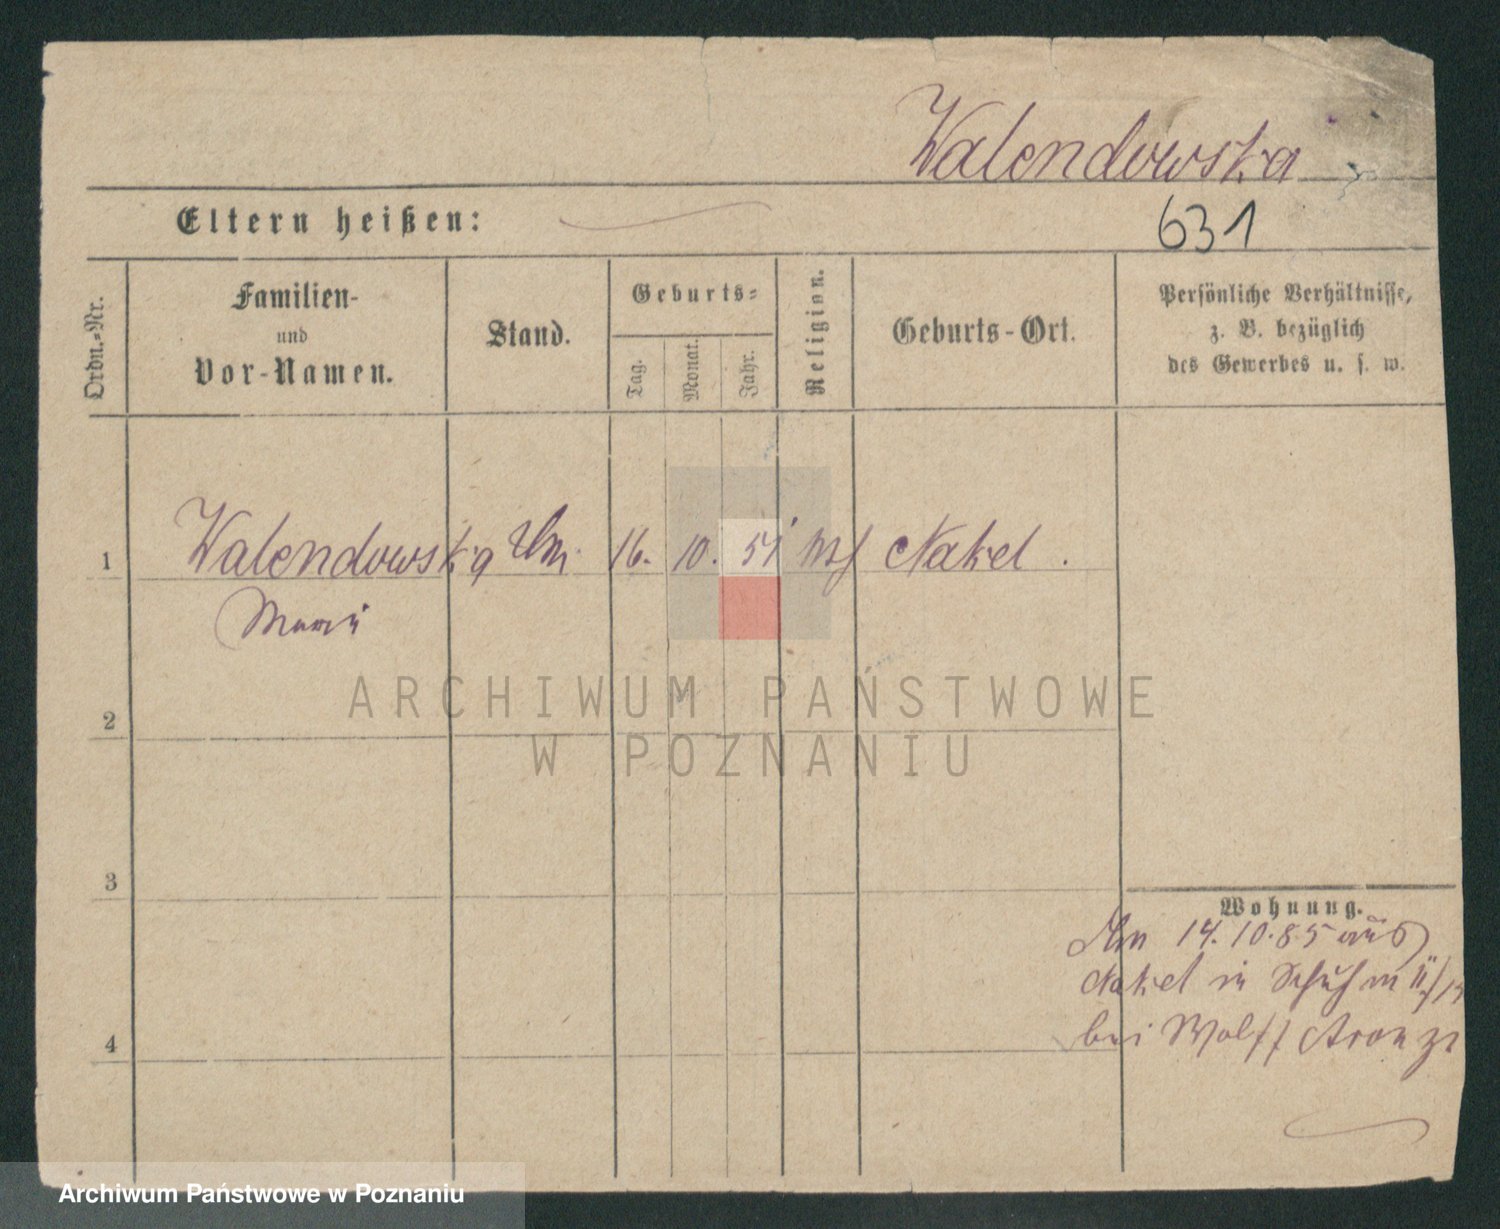 Walendowska
Eltern heißen:
631
Ordn.-Nr.
Familien-
und
Vor-Namen.
Stand.
Geburts-
Tag.
Monat.
Jahr.
Religion.
Geburts-Ort.
Persönliche Verhältnisse,
z. B. bezüglich
des Gewerbes u. s. w.
1 Walendowska 16. 10. 51 Nakel.
Marie
2
3
4
Wohnung.
14. 10. 85 aus
Nakel in
bei Wolff
ARCHIWUM PAŃSTWOWE
W POZNANIU
Archiwum Państwowe w Poznaniu